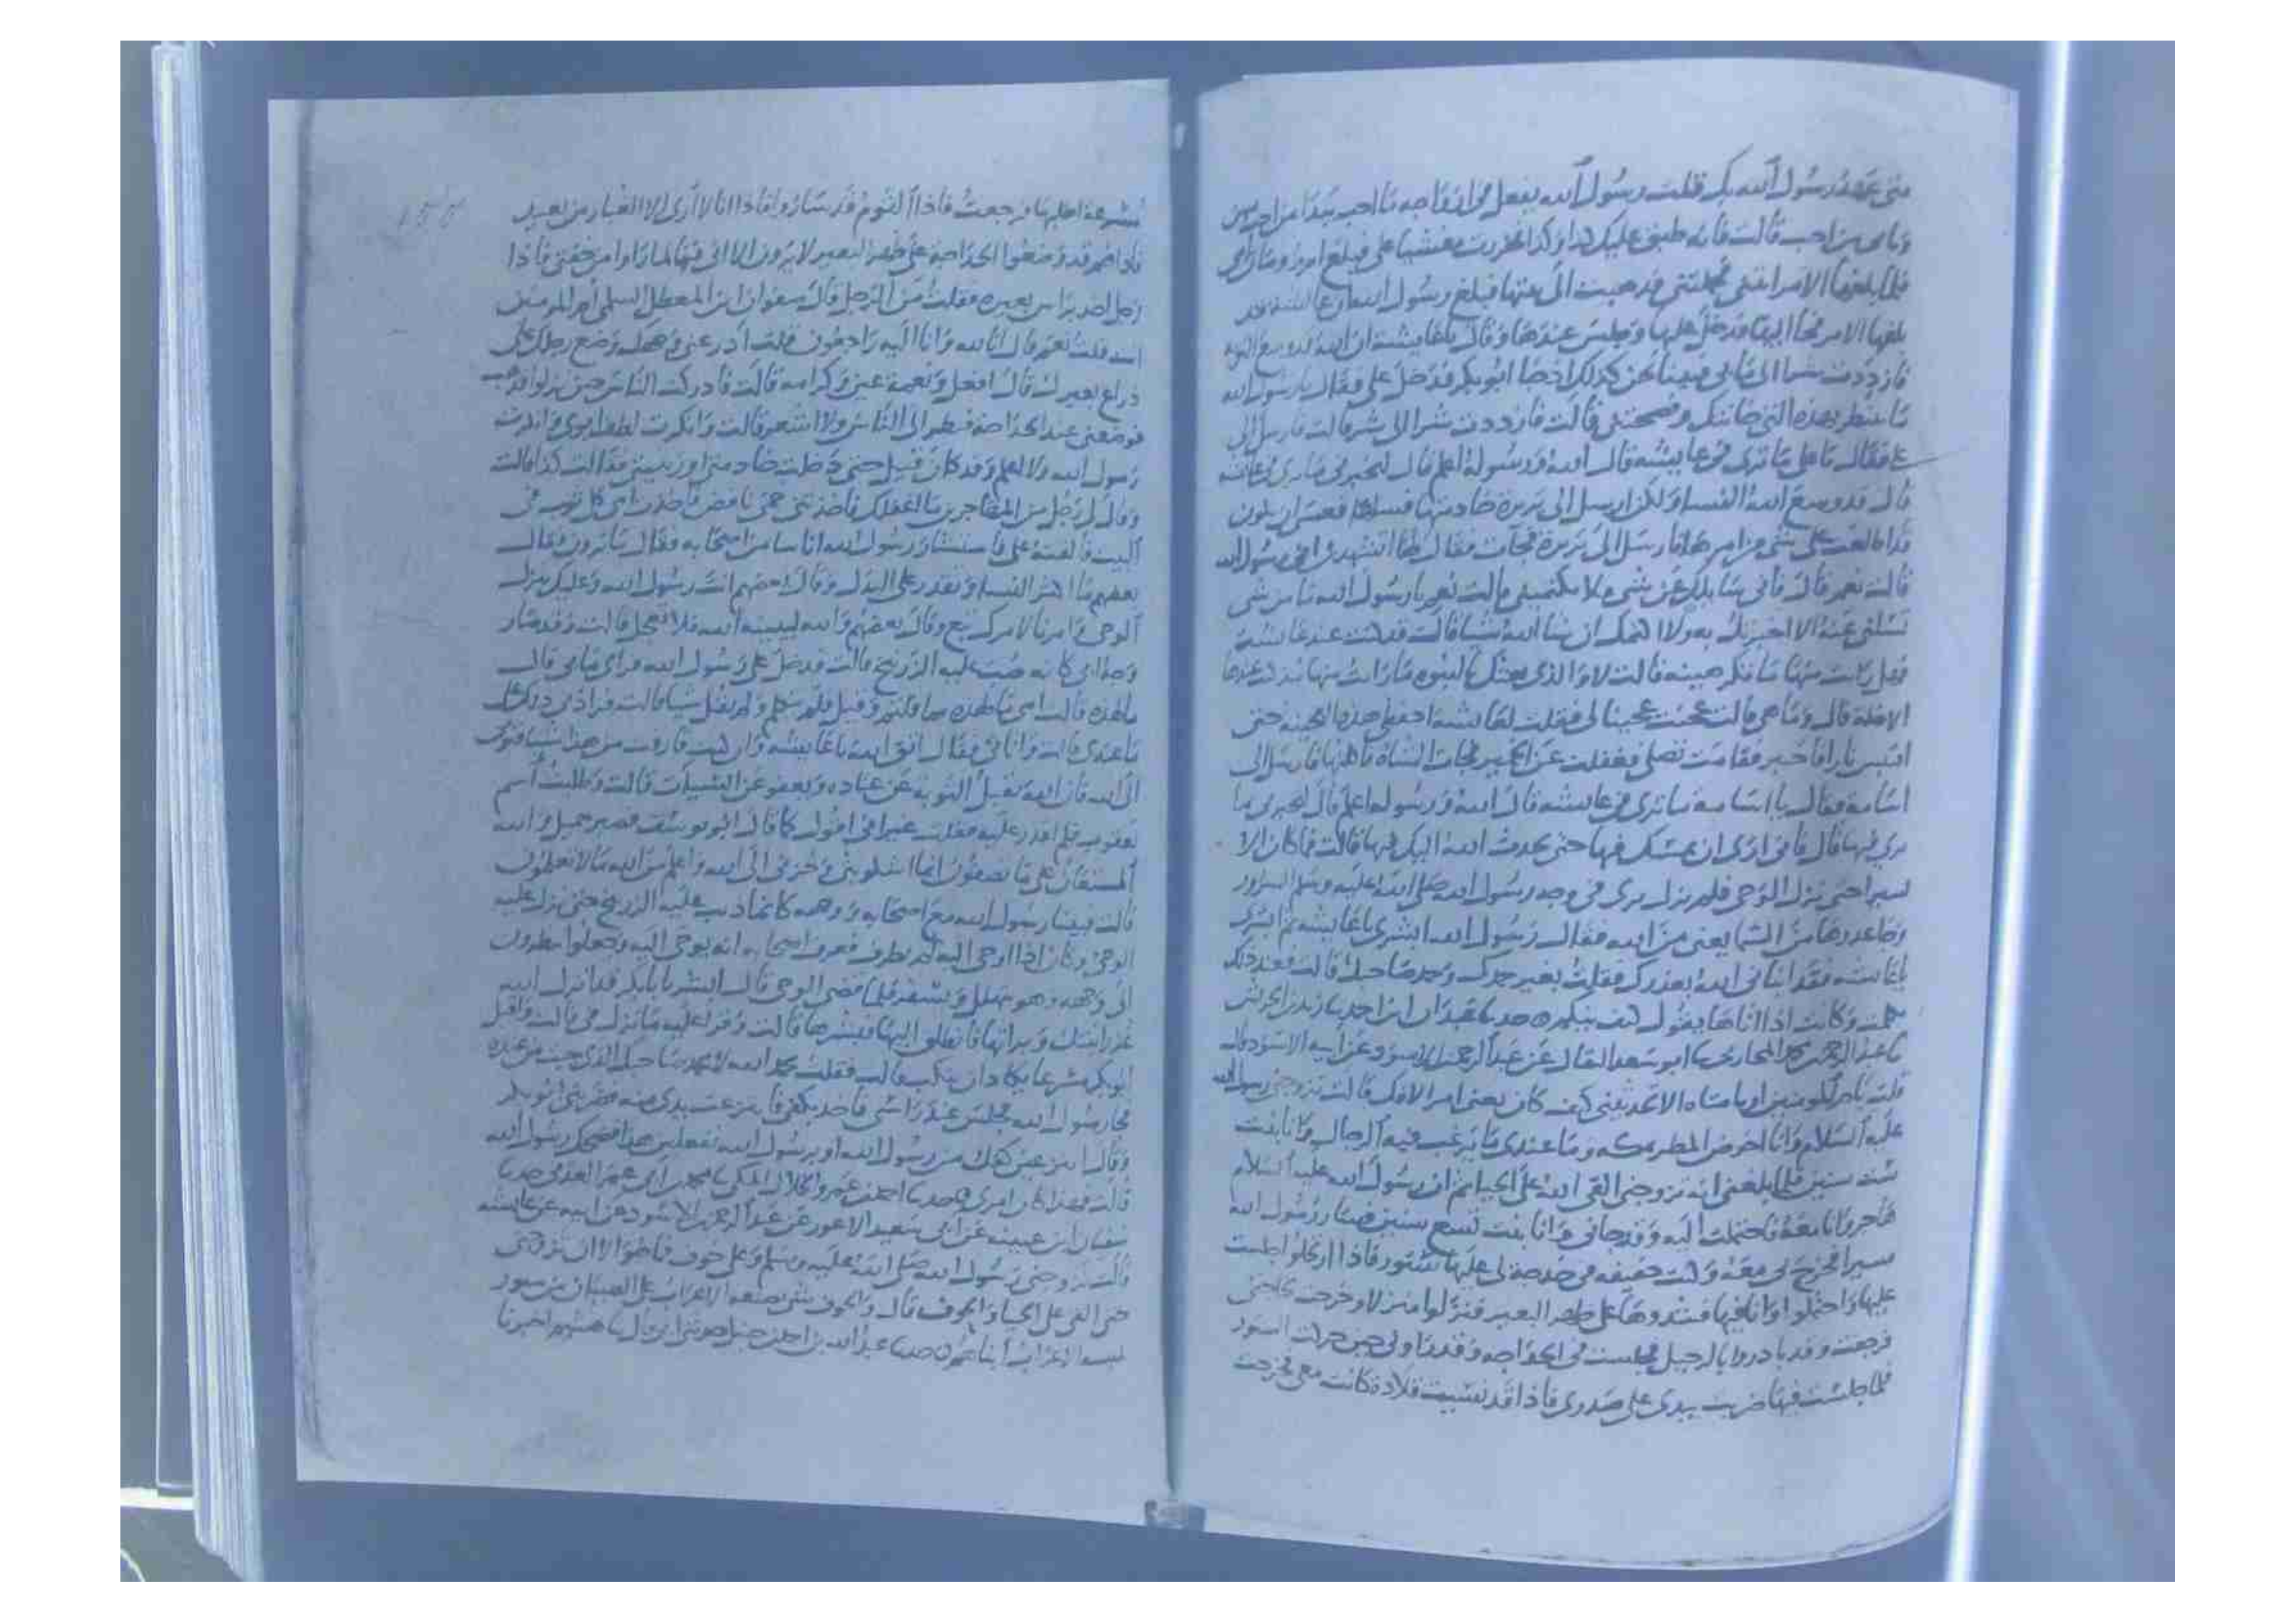 متى عهد رسول الله بك فقلت رسول الله يفعل في
قالت فانه طبق عليك كذا وكذا فخررت مغشيا على فبلغ امي
فلما بلغها الامر اتتنى فحملتنى فذهبت الى بيتها فبلغ رسول الله ان عايشة قد
بلغها الامر فجا اليها فدخل عليها وجلس عندها وقال يا عايشة ان الله قد وسع التوبة
فازددت شرا الى ما بي فبينا نحن كذلك اذ جا ابو بكر فدخل على فقال يا رسول الله
ما تنتظر بهذه التى خانتك وفضحتنى قالت فازددت شرا الى شر قالت فارسل الى
على فقال يا على ما ترى في عايشة قال الله ورسوله اعلم قال لتخبرني ما ترى في عايشة
قال قد وسع الله النسا ولكن ارسل الى بريرة خادمتها فسلها فعسى ان تكون
قد اطلعت على شى من امرها فارسل الى بريرة فجات فقال لها اتشهدين انى رسول الله
قالت نعم قال فانى سايلك عن شى فلا تكتمينى قالت نعم يا رسول الله ما من شى
تسلنى عنه الا اخبرتك به ولا اكتمك ان شا الله شيا قالت قد كنت عند عايشة
فهل رايت منها ما تكرهينه قالت لا والذى بعثك بالنبوه ما رايت منها منذ كنت عندها
الا خلة قال وما هى قالت عجنت عجينا لى فقلت لعايشة احفظى هذه العجينه حتى
اقتبس نارا فاختبز فقامت تصلى فغفلت عن الخمير فجات الشاة فاكلتها فارسل الى
اسامة فقال يا اسامة ما ترى في عايشة قال الله ورسوله اعلم قال لتخبرنى بما
ترى فيها قال فانى ارى ان تمسك فيها حتى يحدث الله اليك فيها قالت فما كان الا
يسيرا حتى نزل الوحى فلم يزل يرى في وجه رسول الله صلى الله عليه وسلم السرور
وجا عذرها من السما يعنى من الله فقال رسول الله ابشرى يا عايشة ثم ابشرى
يا عايشة فقد اتانى الله بعذرك فقلت بغير حمدك وحمد صاحبك قالت فعند ذلك
تكلمت وكانت اذا اتاها يقول كيف تيكم حدثنا عبدان ابن احمد نا زيد بن الحريش
نا عبد الرحمن بن محمد المحاربى نا ابو سعد البقال عن عبد الرحمن بن الاسود عن ابيه الاسود قال
قلت يام المومنين او يا امتاه الا تحدثينى كيف كان يعنى امر الافك قالت تزوجنى رسول الله
عليه السلام وانا اخوض المطر بمكه وما عندى ما يرغب فيه الرجال وانا بنت
ست سنين فلما بلغنى انه تزوجنى القى الله على الحيا ثم ان رسول الله عليه السلام
هاجر وانا معه فاحتملت اليه وقد جانى وانا بنت تسع سنين فسار رسول الله
مسيرا فخرج بى معه وكنت خفيفه في خدجة لى عليها ستور فاذا ارتحلوا جلست
عليها واحتملوا وانا فيها فشدوها على ظهر البعير فنزلوا منزلا وخرجت لحاجتى
فرجعت وقد نادوا بالرحيل فجلست في الحداجه وقد راونى حين حركت الستور
فلما جلست فيها ضربت بيدى على صدرى فاذا قد نسيت قلادة كانت معى فخرجت
مسرعة اطلبها فرجعت فاذا القوم قد ساروا فاذا انا لا ارى الا الغبار من بعيد
فاذا هم قد وضعوا الحداجة على ظهر البعير لا يرون الا انى فيها لما راوا من خفتى فاذا
رجل اخذ براس بعيره فقلت من الرجل قال صفوان ابن المعطل السلمى ام المومنين
انت قلت نعم قال انا لله وانا اليه راجعون قلت ادر عنى وجهك وضع رجلك على
ذراع بعيرك قال افعل ونعمة عين وكرامه قالت فادركت الناس حين نزلوا فذهب
فوضعنى عند الحداجة فنظر الى الناس ولا اشعر قالت وانكرت لطف ابوى وانكرت
رسول الله ولا اعلم وقد كان قبيل حتى دخلت خادمتى او ربيبتى فقالت كذا قالت
وقال لى رجل من المهاجرين ما اغفلك فاخذتنى حمى نافض فاخذت امى كل ثوب في
البيت فالقته على فاستشار رسول الله اناسا من اصحابه فقال ما ترون فقال
بعضهم ما اكثر النسا وتقدر على البدل وقال بعضهم انت رسول الله وعليك ينزل
الوحى وامرنا لامرك تبع وقال بعضهم والله ليبينه الله فلا تعجل قالت وقد صار
وجه ابى كانه صب عليه الزرنيخ قالت فدخل على رسول الله فراى ما بى قال
ما لهذه قالت امى ما لهذه مما قلتم وقيل فلم يتكلم ولم يقل شيا قالت فزادنى ذلك على
ما عندى قالت واتانى فقال اتق الله يا عايشة وان كنت قارفت من هذا شيا فتوبى
الى الله فان الله يقبل التوبة عن عباده ويعفو عن السييات قالت وطلبت اسم
يعقوب فلم اقدر عليه فقلت غير انى اقول كما قال ابو يوسف فصبر جميل والله
المستعان على ما تصفون انما اشكو بثى وحزنى الى الله واعلم من الله ما لا تعلمون
قالت فبينا رسول الله مع اصحابه ووجهه كانما ذيب عليه الزرنيخ حتى نزل عليه
الوحى وكان اذا اوحى اليه لم يطرف فعرف اصحابه انه يوحى اليه وجعلوا ينظرون
الى وجهه وهو يتهلل ويسفر فلما قضى الوحى قال ابشر يا ابا بكر قد انزل الله
عذر ابنتك وبراتها فانطلق اليها فبشرها قالت وقرا عليه ما نزل في قالت واقبل
ابو بكر مسرعا يكاد ان ينكب قالت فقلت بحمد الله لا بحمد صاحبك الذى جيت من عنده
فجا رسول الله فجلس عند راسى فاخذ بكفى فانتزعت يدى منه فضربنى ابو بكر
وقال اتنزعين كفك من رسول الله او برسول الله تفعلين هذا فضحك رسول الله
قالت فهذا كان امرى حدثنا احمد بن عمرو الخلال المكى نا محمد بن ابى عمر العدنى حدثنا
سفيان ابن عيينه عن ابى سعيد الاعور عن عبد الرحمن بن الاسود عن ابيه عن عايشه
قالت تزوجنى رسول الله صلى الله عليه وسلم وعلى خوف فما هو الا ان تزوجنى
حتى القى على الحيا والخوف قال والخوف شى تصنعه الاعراب على الصبيان من سيور
حدثنا عبد الله بن احمد بن حنبل حدثنى ابى قال نا هشيم اخبرنا